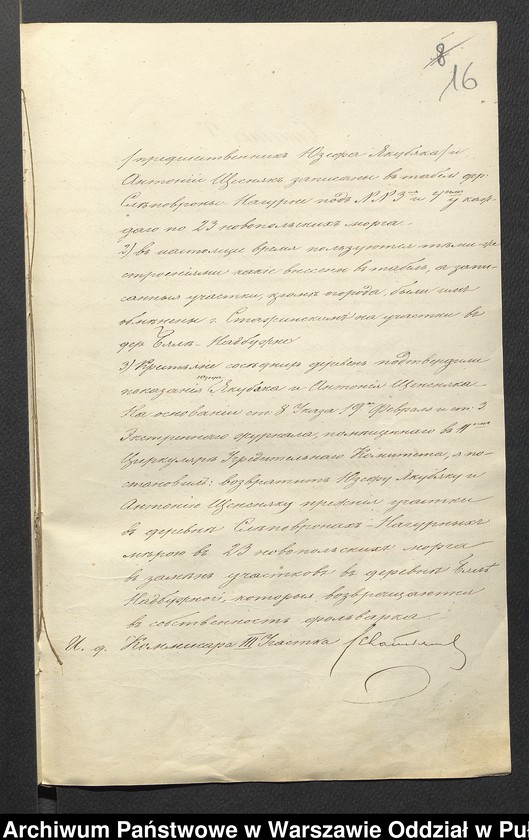 8
16
/предшественникъ Юзефа Якубяка/ и
Антоній Щесняк записаны в табели дер.
Слѣповроны Нагурне подъ NN 3 и 4 у каж-
даго по 23 новопольскихъ морга.
2) въ настоящее время пользуются тѣми же
строеніями какіе внесены в табель, а запи-
санные участки, кромѣ огорода, были имъ
обмѣнены г. на участки въ
дер. Бяле-Надбужне
3) Крестьяне сосѣднихъ деревень подтвердили
показанія Юзефа Якубяка и Антонія Щесняка.
На основаніи ст. 8 Указа 19 Февраля и ст. 3
журнала, помѣщеннаго въ 11
Циркулярѣ Учредительнаго Комитета, я по-
становилъ: возвратить Юзефу Якубяку и
Антонію Щесняку прежніе участки
въ деревнѣ Слѣповронахъ-Нагурныхъ
мѣрою въ 23 новопольскихъ морга
въ замѣнъ участковъ въ деревнѣ Бялѣ
Надбужной, которые возвращаются
въ собственность фольварка.
И. д. Коммисара III Участка
Archiwum Państwowe w Warszawie Oddział w Pu